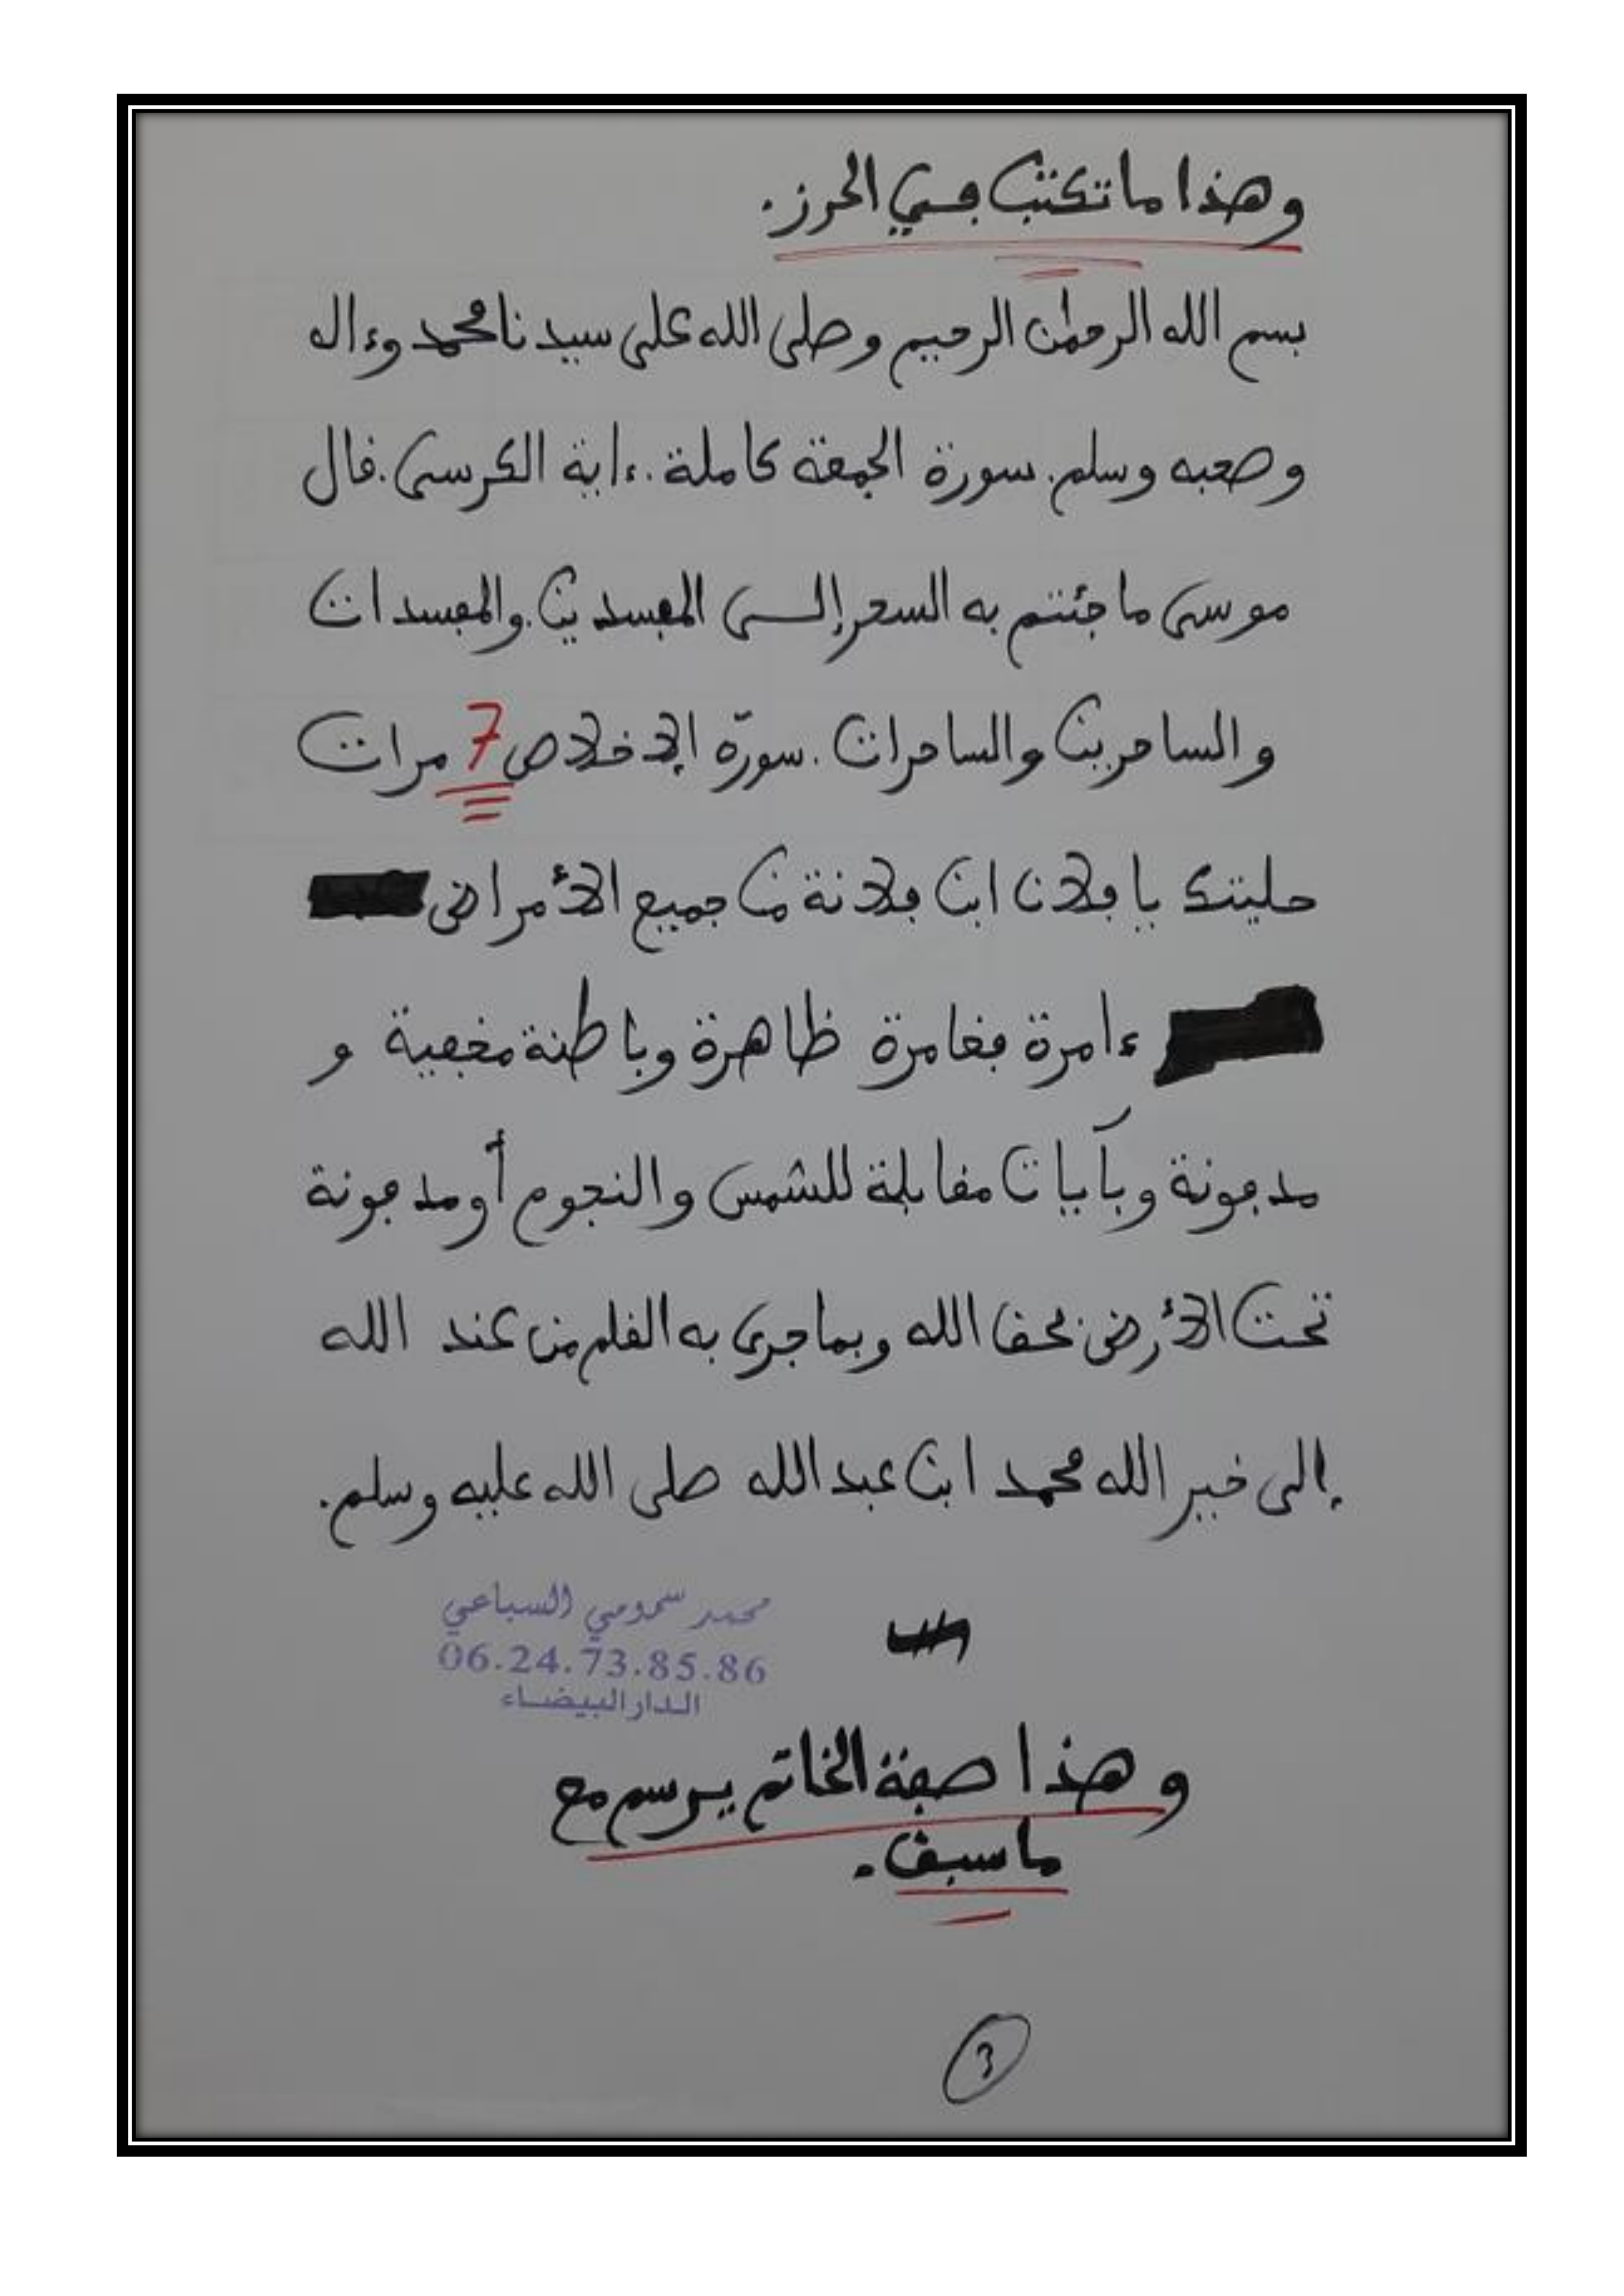 وهذا ما تكتب في الحرز.
بسم الله الرحمٰن الرحيم وصلى الله على سيدنا محمد وءاله
وصحبه وسلم. سورة الجمعة كاملة. ءاية الكرسي. قال
موسى ما جئتم به السحر إلى المفسدين. والمفسدات
والساحرين والساحرات. سورة الإخلاص 7 مرات
حليتك يا فلان ابن فلانة من جميع الأمراض
ءامرة فغامرة ظاهرة وباطنة مخفية و
مدفونة وبآيات مقابلة للشمس والنجوم أو مدفونة
تحت الأرض بحق الله وبما جرى به القلم من عند الله
إلى خير الله محمد ابن عبد الله صلى الله عليه وسلم.
محمد سمومي السباعي
06.24.73.85.86
الدار البيضاء
وهذا صفة الخاتم يرسم مع
ما سبق.
3